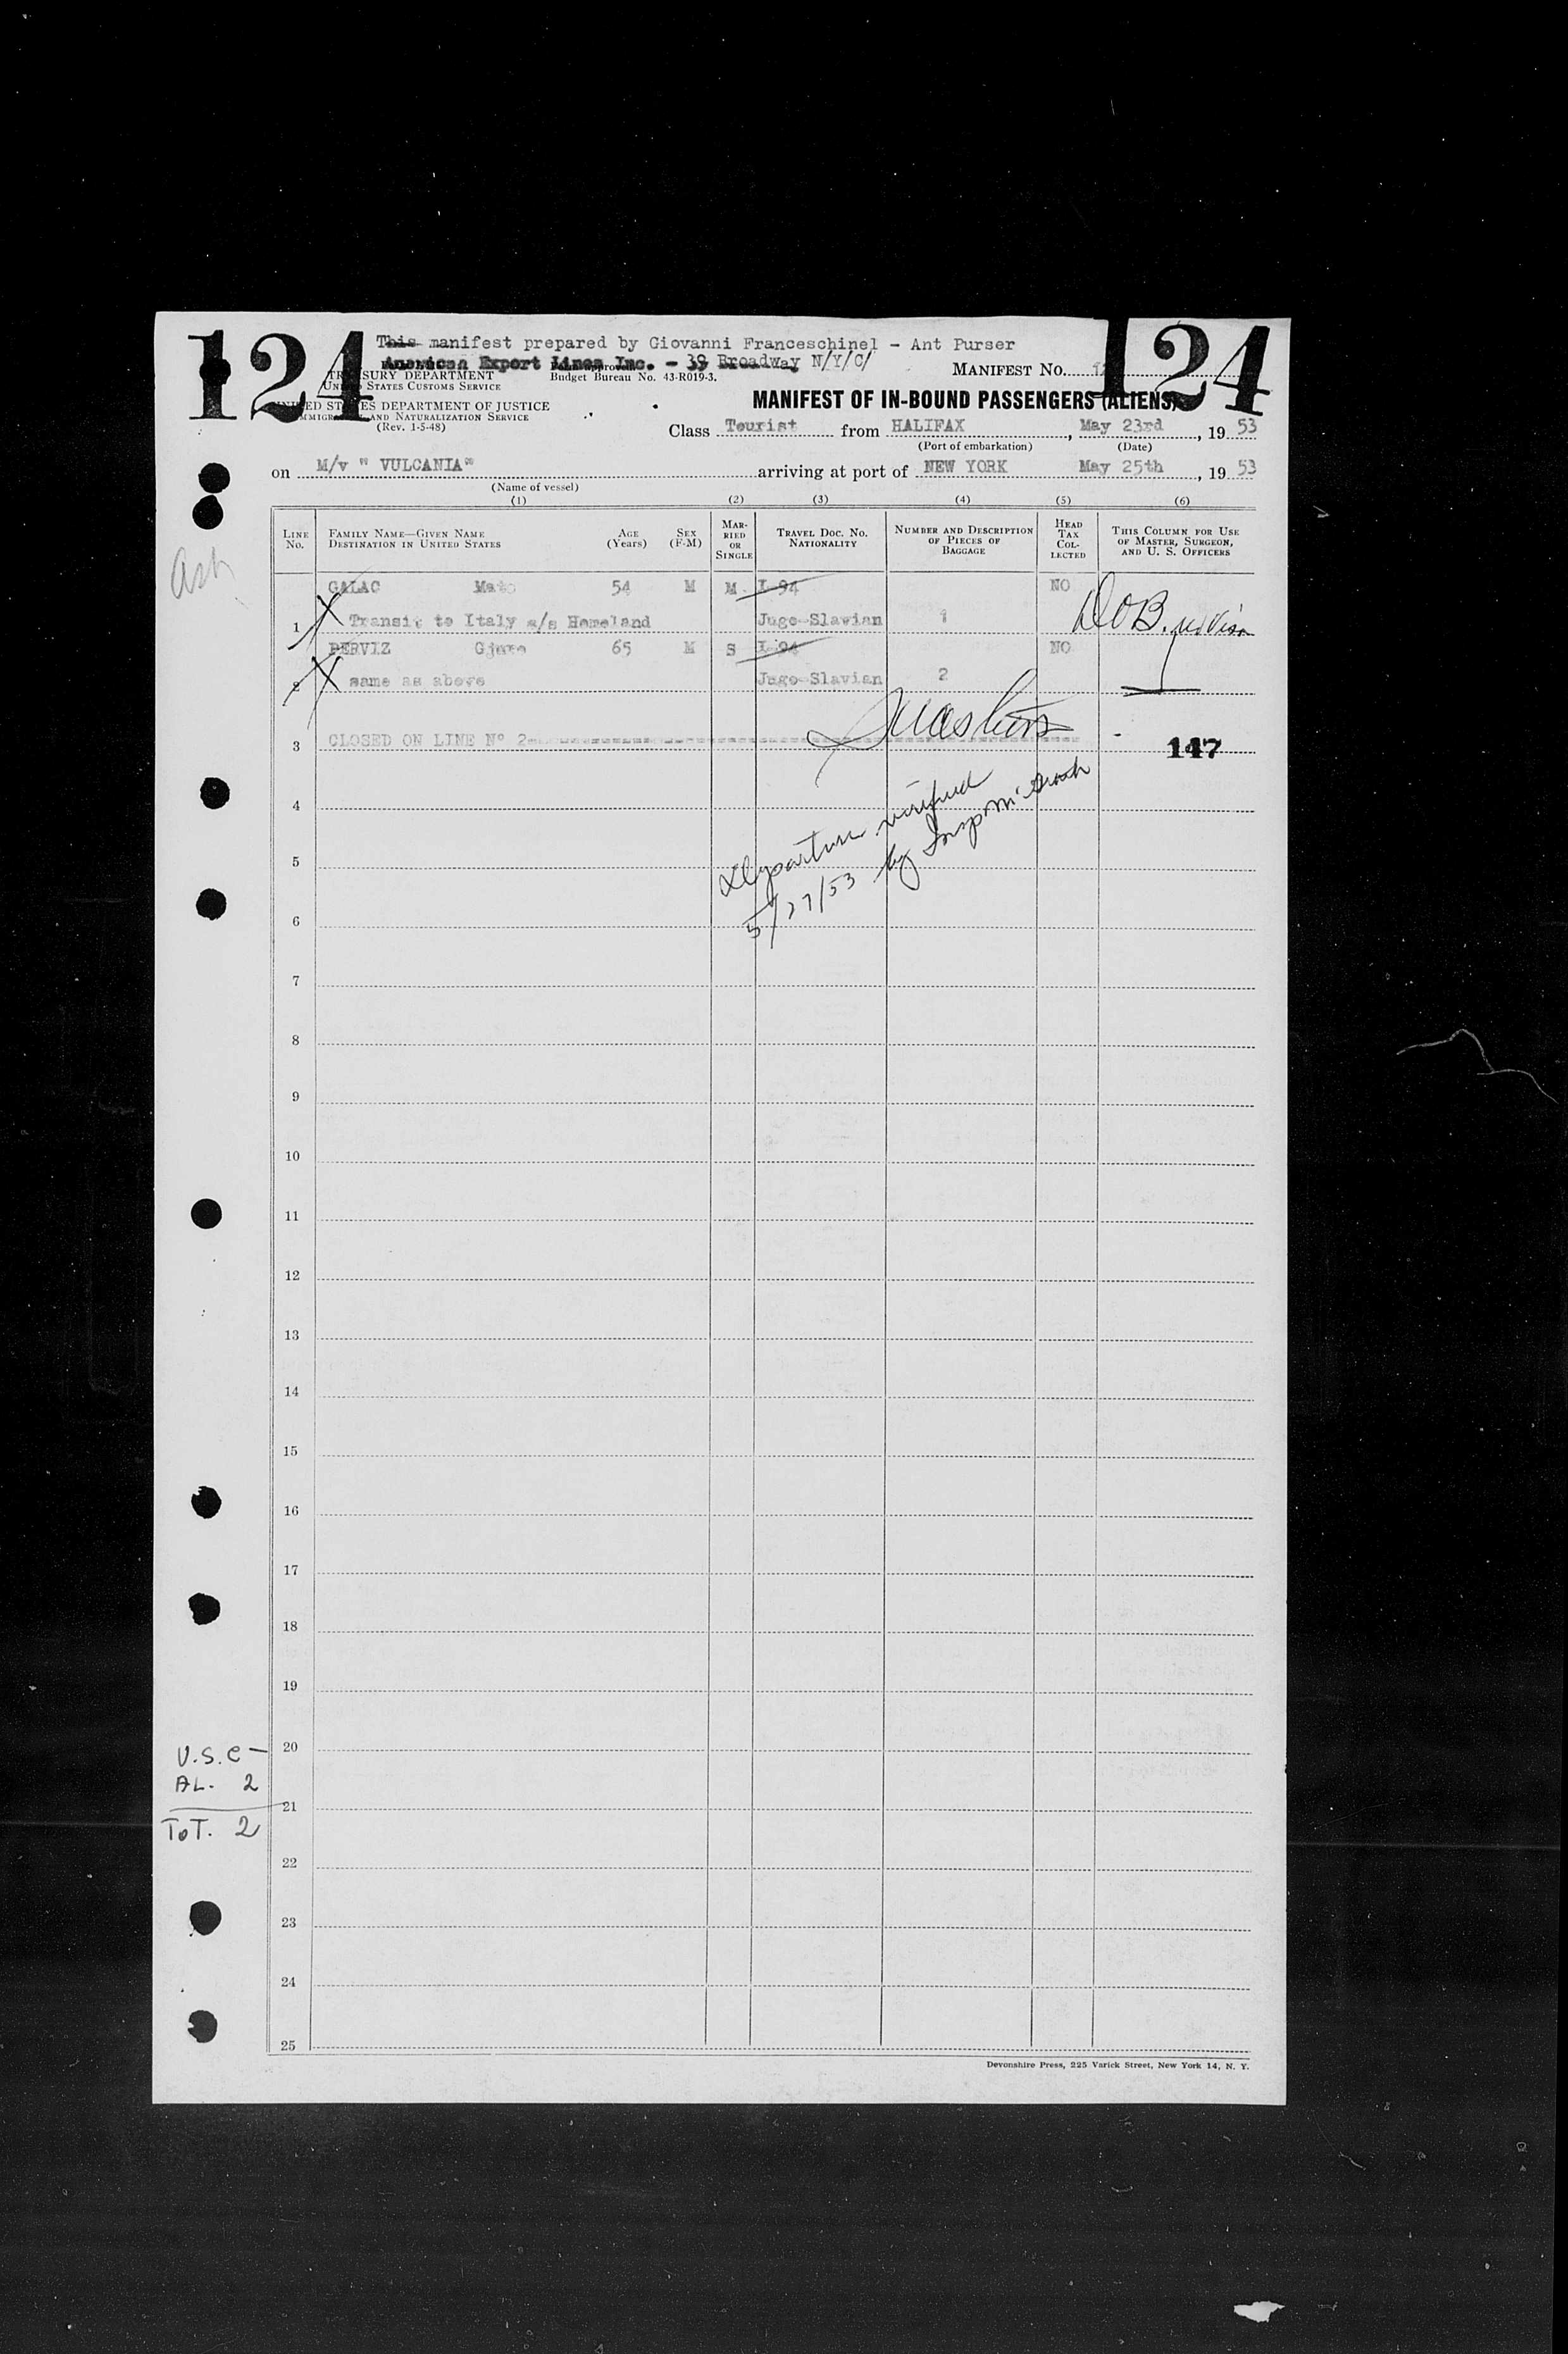 124
124
This manifest prepared by Giovanni Franceschinel - Ant Purser
American Export Lines Inc. - 39 Broadway N/Y/C/
TREASURY DEPARTMENT
UNITED STATES CUSTOMS SERVICE
Budget Bureau No. 43-R019-3.
MANIFEST NO.
UNITED STATES DEPARTMENT OF JUSTICE
IMMIGRATION AND NATURALIZATION SERVICE
(Rev. 1-5-48)
MANIFEST OF IN-BOUND PASSENGERS (ALIENS)
Class Tourist from HALIFAX, May 23rd, 19 53
(Port of embarkation) (Date)
on M/v " VULCANIA" arriving at port of NEW YORK May 25th, 19 53
(Name of vessel)
(1) (2) (3) (4) (5) (6)
LINE NO.
FAMILY NAME—GIVEN NAME
DESTINATION IN UNITED STATES
AGE (Years)
SEX (F-M)
MARRIED OR SINGLE
TRAVEL DOC. NO. NATIONALITY
NUMBER AND DESCRIPTION OF PIECES OF BAGGAGE
HEAD TAX COLLECTED
THIS COLUMN FOR USE OF MASTER, SURGEON, AND U. S. OFFICERS
GALAC Mato 54 M M I-94 NO
1 Transit to Italy a/s Homeland Jugo-Slavian 1
PERVIZ 65 M S I-94 NO
2 same as above Jugo-Slavian 2
3 CLOSED ON LINE N° 2
147
Departure verified
5/27/53 by Insp McGrath
4
5
6
7
8
9
10
11
12
13
14
15
16
17
18
19
20
U.S.C -
AL. 2
21
TOT. 2
22
23
24
25
Devonshire Press, 225 Varick Street, New York 14, N. Y.